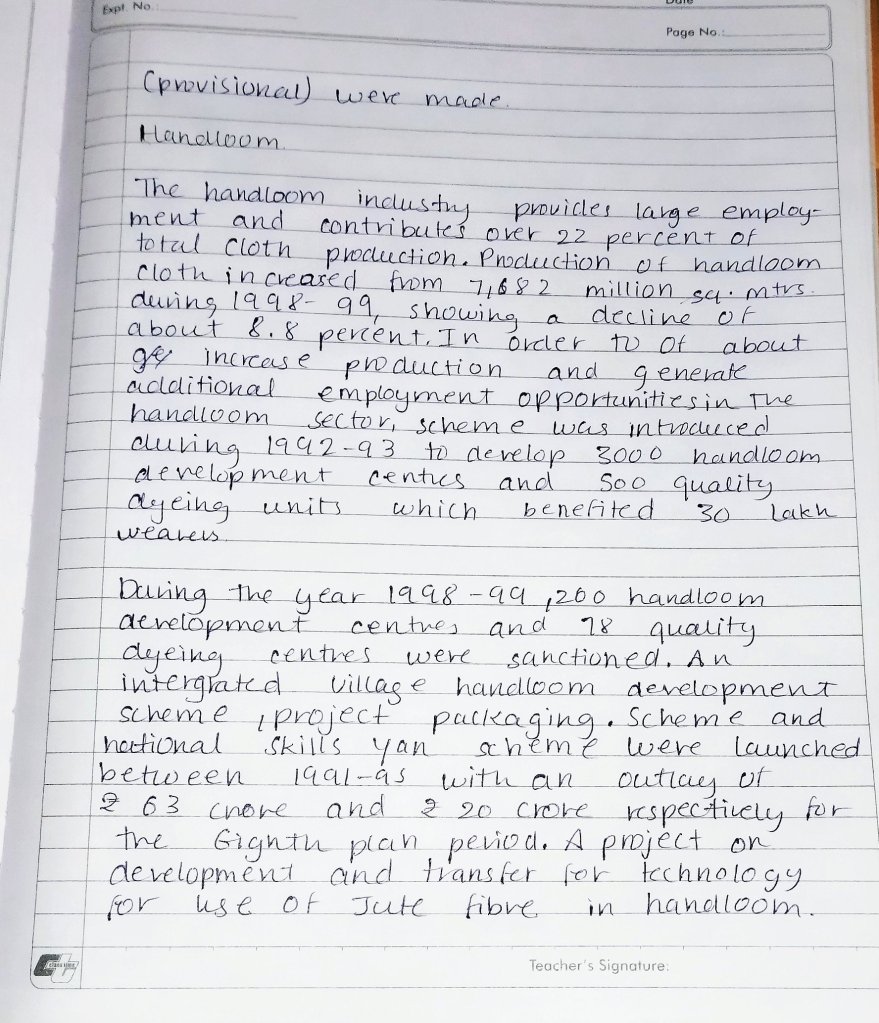 Expt. No.:
Date
Page No.:
(provisional) were made.
Handloom.
The handloom industry provides large employ-
ment and contributes over 22 percent of
total cloth production. Production of handloom
cloth increased from 7,682 million sq. mtrs.
during 1998-99, showing a decline of
about 8.8 percent. In order to of about
increase production and generate
additional employment opportunities in The
handloom sector, scheme was introduced
during 1992-93 to develop 3000 handloom
development centres and 500 quality
dyeing units which benefited 30 Lakh
weavers.
During the year 1998-99, 200 handloom
development centres and 78 quality
dyeing centres were sanctioned. An
intergrated village handloom development
scheme, project packaging. Scheme and
national skills yan scheme were launched
between 1991-95 with an outlay of
₹ 63 crore and ₹ 20 crore respectively for
the Eighth plan period. A project on
development and transfer for technology
for use of Jute fibre in handloom.
Teacher's Signature: